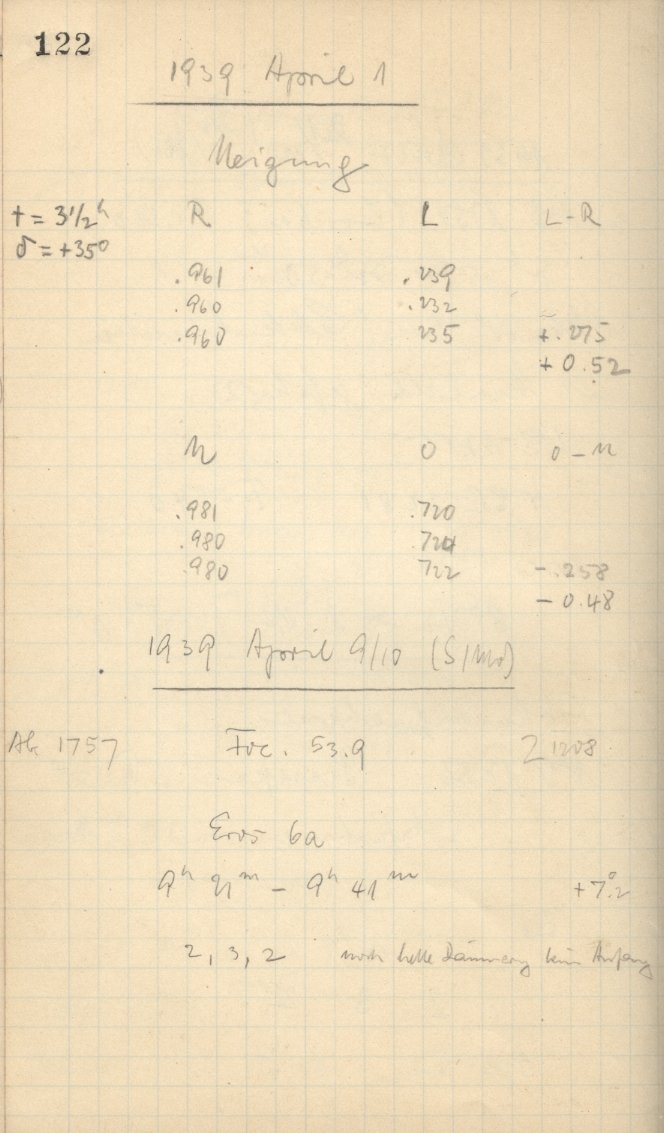 122
1939 April 1
Neigung
t = 3 1/2 h
δ = +35°
R L L-R
.961 .239
.960 .232
.960 .235 +.275
+ 0.52
U O O-U
.981 .720
.980 .724
.980 722 -.258
- 0.48
1939 April 9/10 (S/Mo)
Ab 1757 Foc. 53.9 Z 1208
Eros 6a
9h 21m - 9h 41m +7.°2
2, 3, 2 noch helle Dämmerung beim Anfang